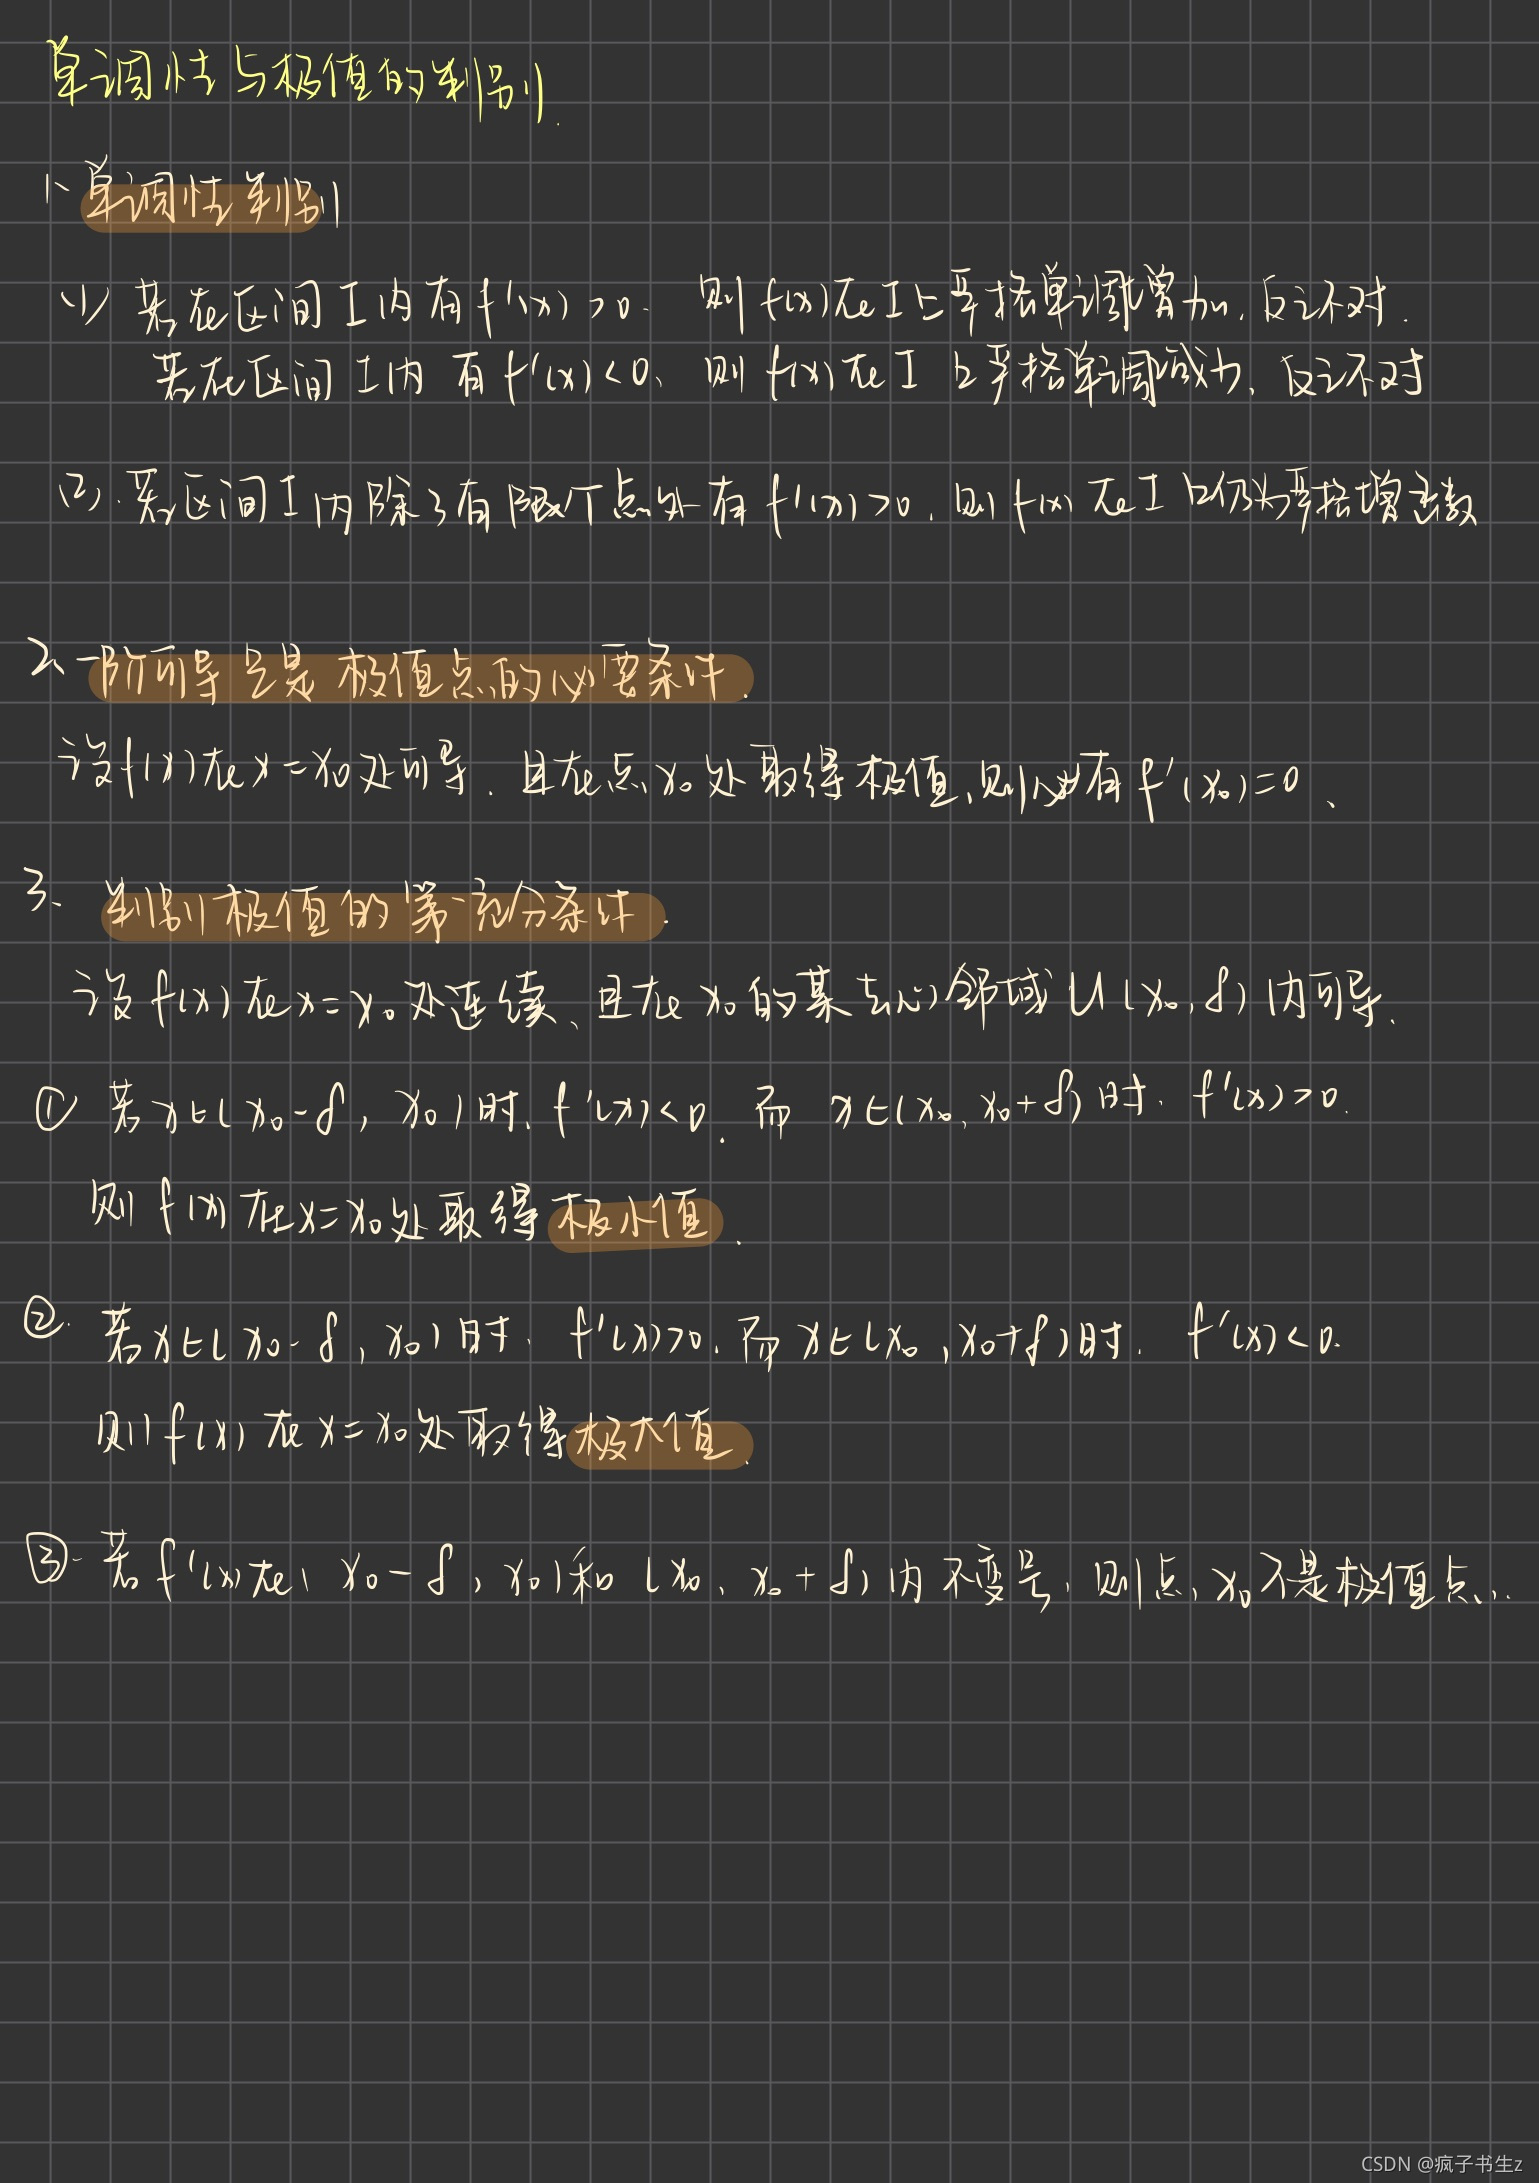 单调性与极值的判别.
1、单调性判别
(1) 若在区间I内有f'(x)>0. 则f(x)在I上严格单调增加, 反之不对.
若在区间I内有f'(x)<0、则f(x)在I上严格单调减少, 反之不对
(2). 若区间I内除了有限个点外有f'(x)>0, 则f(x)在I上仍为严格增函数
2、一阶可导点是极值点的必要条件.
设f(x)在x=x₀处可导. 且在点x₀处取得极值,则必有f'(x₀)=0、
3、判别极值的第一充分条件.
设f(x)在x=x₀处连续、且在x₀的某去心邻域U(x₀,δ)内可导.
① 若x∈(x₀-δ, x₀)时, f'(x)<0. 而x∈(x₀, x₀+δ)时. f'(x)>0.
则f(x)在x=x₀处取得极小值.
②. 若x∈(x₀-δ, x₀)时. f'(x)>0. 而x∈(x₀,x₀+δ)时. f'(x)<0.
则f(x)在x=x₀处取得极大值.
③. 若f'(x)在(x₀-δ, x₀)和(x₀, x₀+δ)内不变号, 则点x₀不是极值点..
CSDN @疯子书生z